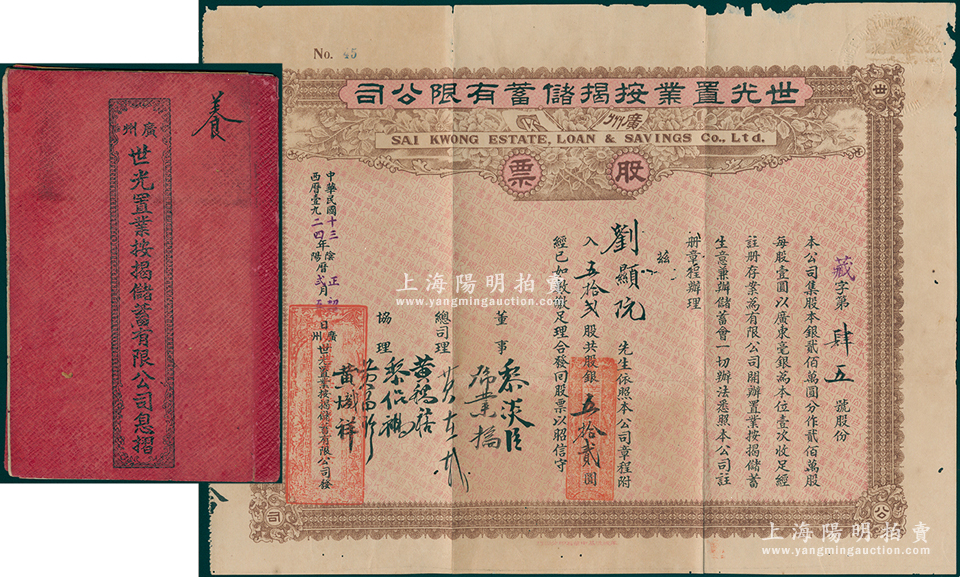 養
廣州
世光置業按揭儲蓄有限公司息摺
No. 45
世光置業按揭儲蓄有限公司
廣州
SAI KWONG ESTATE, LOAN & SAVINGS Co., Ltd.
股票
藏字第肆五號股份
本公司集股本銀貳佰萬圓分作貳佰萬股
每股壹圓以廣東毫銀為本位壹次收足經
註册存案為有限公司開辦置業按揭儲蓄
生意兼辦儲蓄會一切辦法悉照本公司註
册章程辦理
茲
劉顯阮先生依照本公司章程附
入五拾弍股共股銀五拾貳圓
經已如數繳足理合發回股票以昭信守
董事
黎淡
總司理
協理
黃燦祥
中華民國十三年陰曆正月初
西曆壹九二四年陽曆弍月五日
廣州世光置業按揭儲蓄有限公司發
世
光
公
司
上海陽明拍賣
www.yangmingauction.com
上海陽明拍賣
www.yangmingauction.com